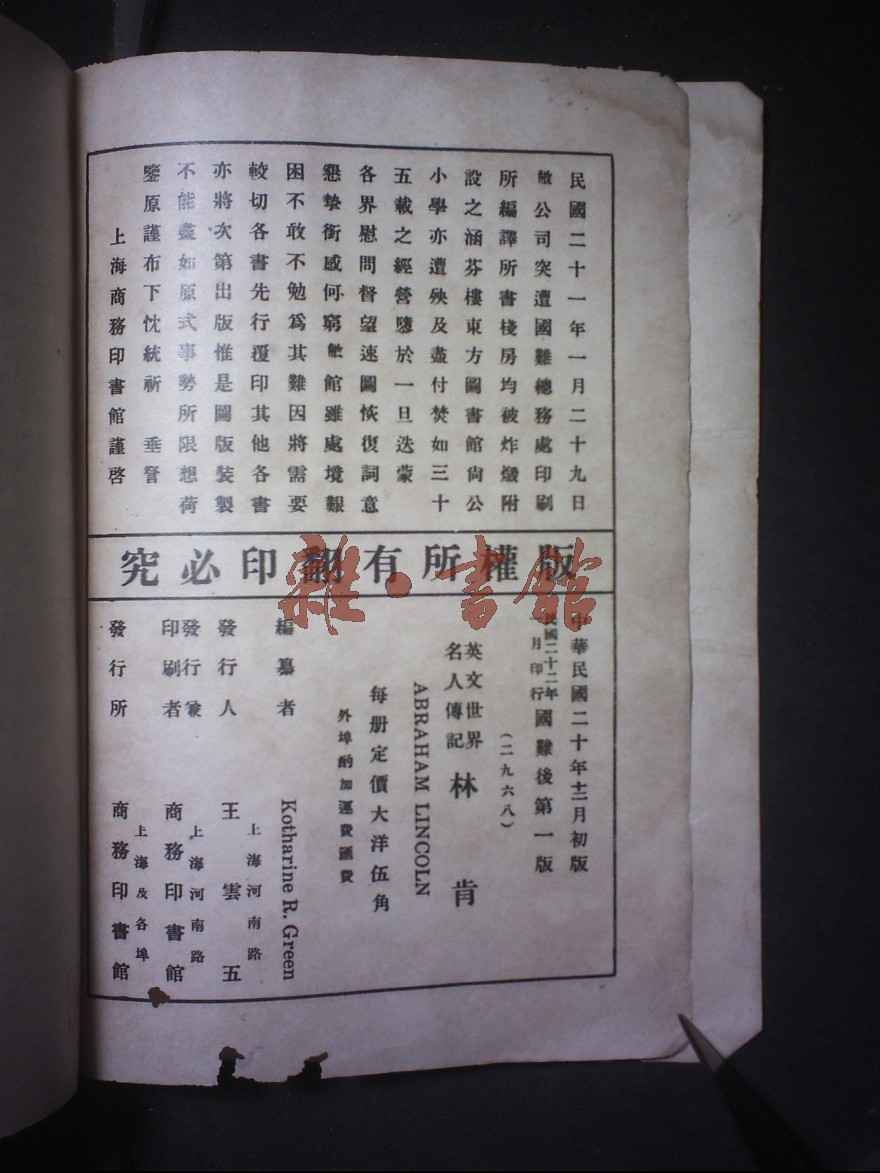 民國二十一年一月二十九日
敝公司突遭國難總務處印刷
所編譯所書棧房均被炸燬附
設之涵芬樓東方圖書館尙公
小學亦遭殃及盡付焚如三十
五載之經營隳於一旦迭蒙
各界慰問督望速圖恢復詞意
懇摯銜感何窮敝館雖處境艱
困不敢不勉爲其難因將需要
較切各書先行覆印其他各書
亦將次第出版惟是圖版裝製
不能盡如原式事勢所限想荷
鑒原謹布下忱統祈 垂詧
上海商務印書館謹啓
版權所有翻印必究
中華民國二十年十二月初版
民國二十二年一月印行 國難後第一版
(二九六八)
英文世界名人傳記 林肯
ABRAHAM LINCOLN
每册定價大洋伍角
外埠酌加運費匯費
編纂者 Kotharine R. Green
發行人 上海河南路 王雲五
發行兼印刷者 上海河南路 商務印書館
發行所 上海及各埠 商務印書館
雜·書館